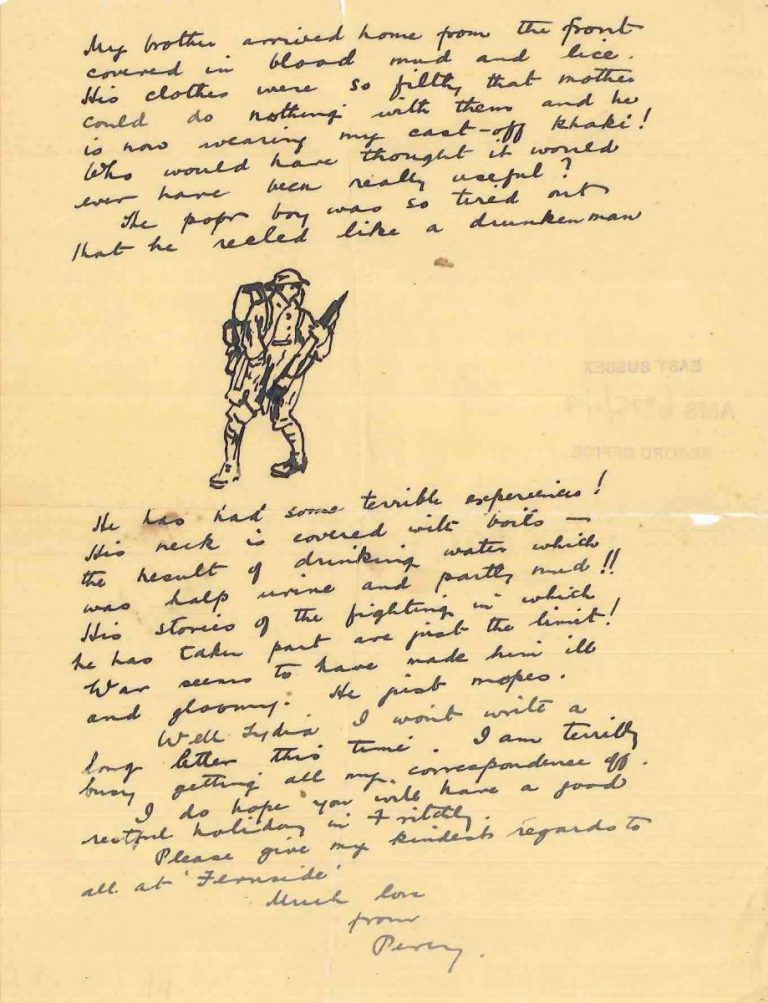 My brother arrived home from the front
covered in blood mud and lice.
His clothes were so filthy that mother
could do nothing with them and he
is now wearing my cast-off khaki!
Who would have thought it would
ever have been really useful?
The poor boy was so tired out
that he reeled like a drunken man
EAST SUSSEX
AMS
RECORD OFFICE
He has had some terrible experiences!
His neck is covered with boils —
the result of drinking water which
was half urine and partly mud!!
His stories of the fighting in which
he has taken part are just the limit!
War seems to have made him ill
and gloomy. He just mopes.
Well Lydia I won't write a
long letter this time. I am terribly
busy getting all my correspondence off.
I do hope you will have a good
restful holiday in
Please give my kindest regards to
all at 'Fernside'
Much love
from
Percy.